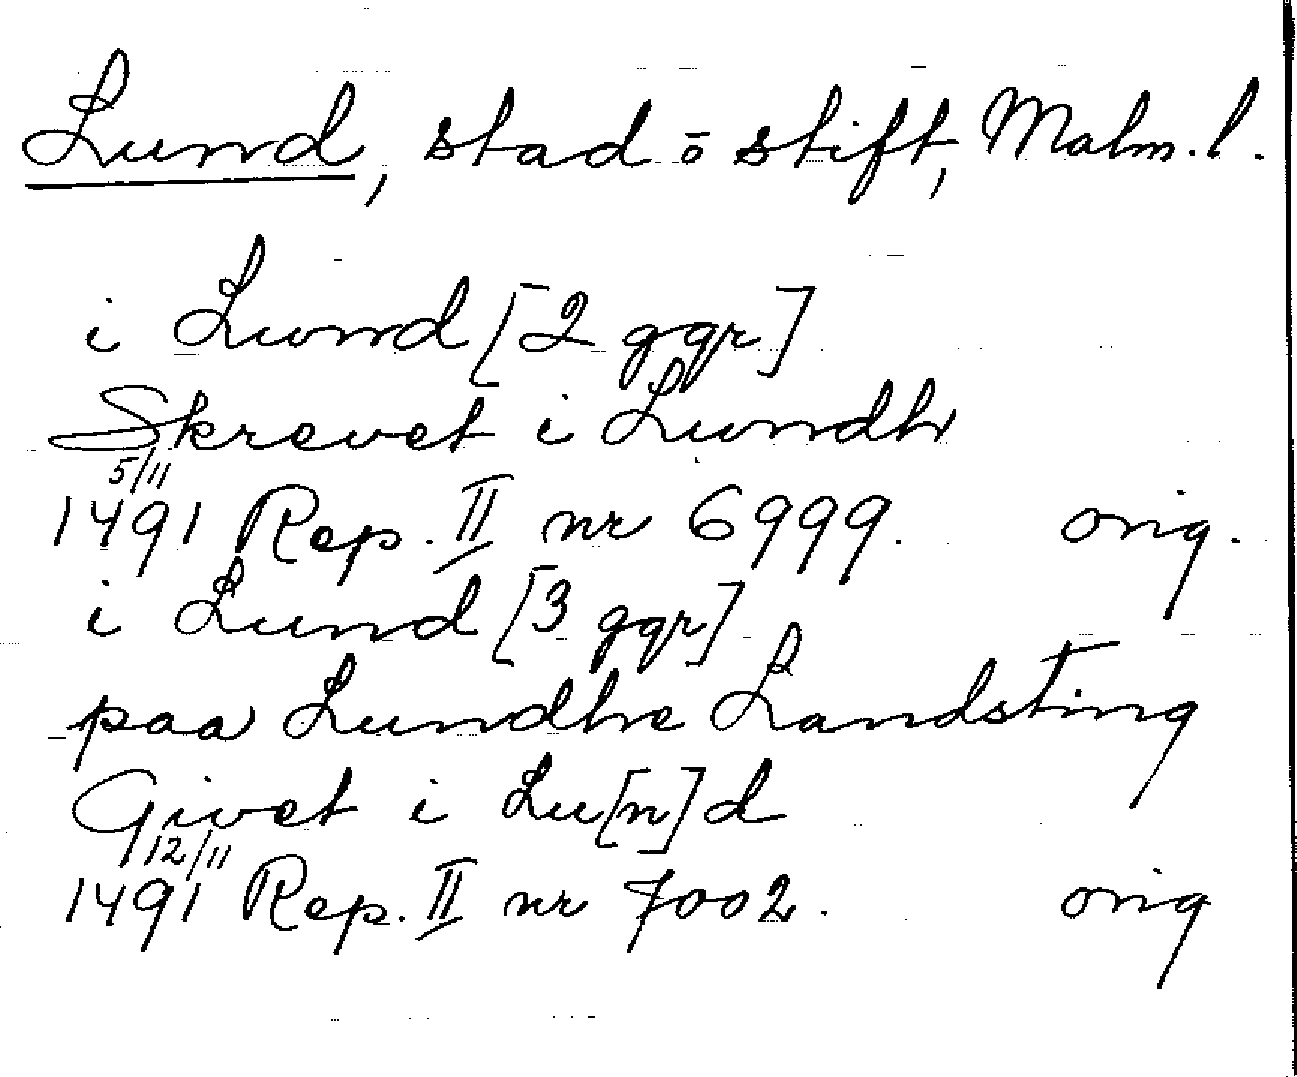 Lund, stad ō stift, Malm. l.
i Lund [2 ggr]
Skrevet i Lundh
5/11
1491 Rep. II nr 6999. orig.
i Lund [3 ggr]
paa Lundhe Landsting
Givet i Lu[n]d
12/11
1491 Rep. II nr 7002. orig